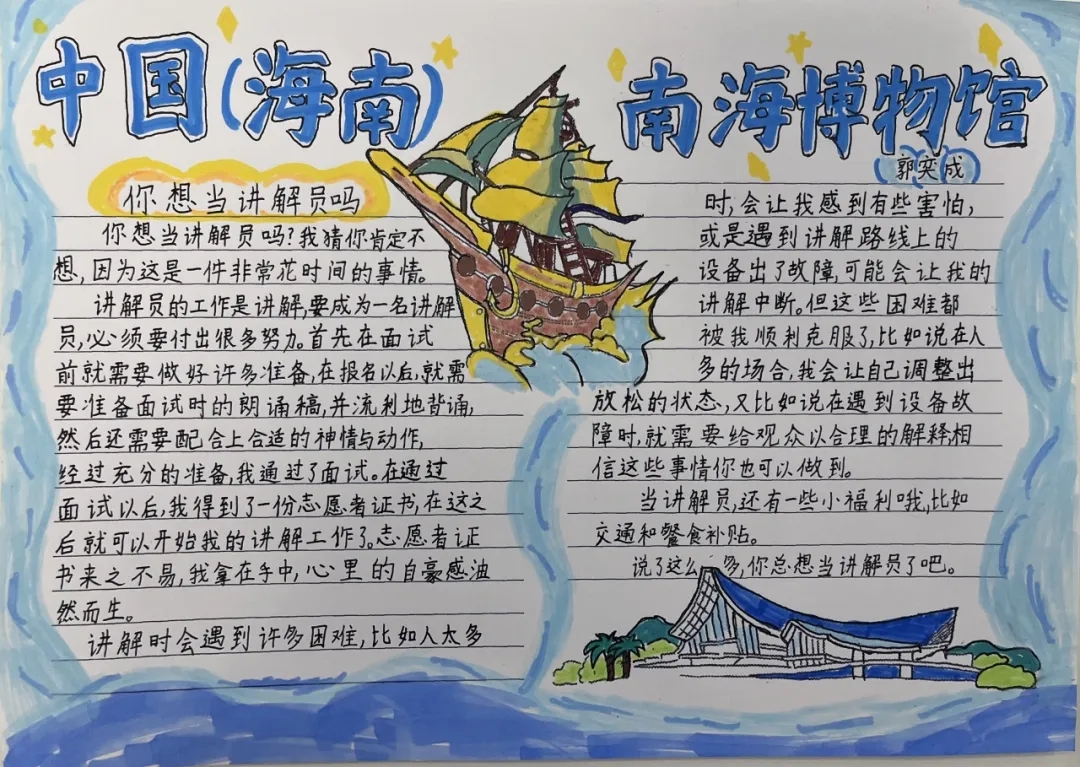 中国(海南)
南海博物馆
郭奕成
你想当讲解员吗
你想当讲解员吗?我猜你肯定不
想,因为这是一件非常花时间的事情。
讲解员的工作是讲解,要成为一名讲解
员,必须要付出很多努力。首先在面试
前就需要做好许多准备,在报名以后,就需
要准备面试时的朗诵稿,并流利地背诵,
然后还需要配合上合适的神情与动作,
经过充分的准备,我通过了面试。在通过
面试以后,我得到了一份志愿者证书,在这之
后就可以开始我的讲解工作了。志愿者证
书来之不易,我拿在手中,心里的自豪感油
然而生。
讲解时会遇到许多困难,比如人太多
时,会让我感到有些害怕,
或是遇到讲解路线上的
设备出了故障,可能会让我的
讲解中断。但这些困难都
被我顺利克服了,比如说在人
多的场合,我会让自己调整出
放松的状态,又比如说在遇到设备故
障时,就需要给观众以合理的解释相
信这些事情你也可以做到。
当讲解员,还有一些小福利哦,比如
交通和餐食补贴。
说了这么多,你总想当讲解员了吧。